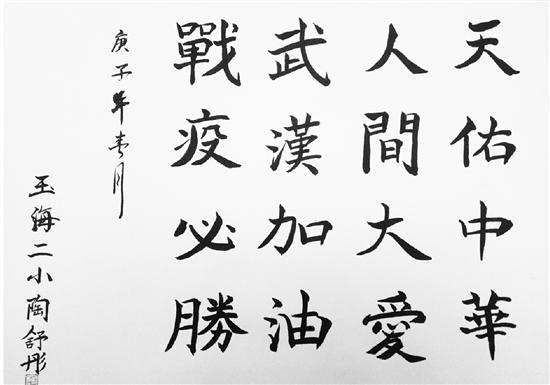 天佑中華
人間大愛
武漢加油
戰疫必勝
庚子年春月
玉海二小陶舒彤